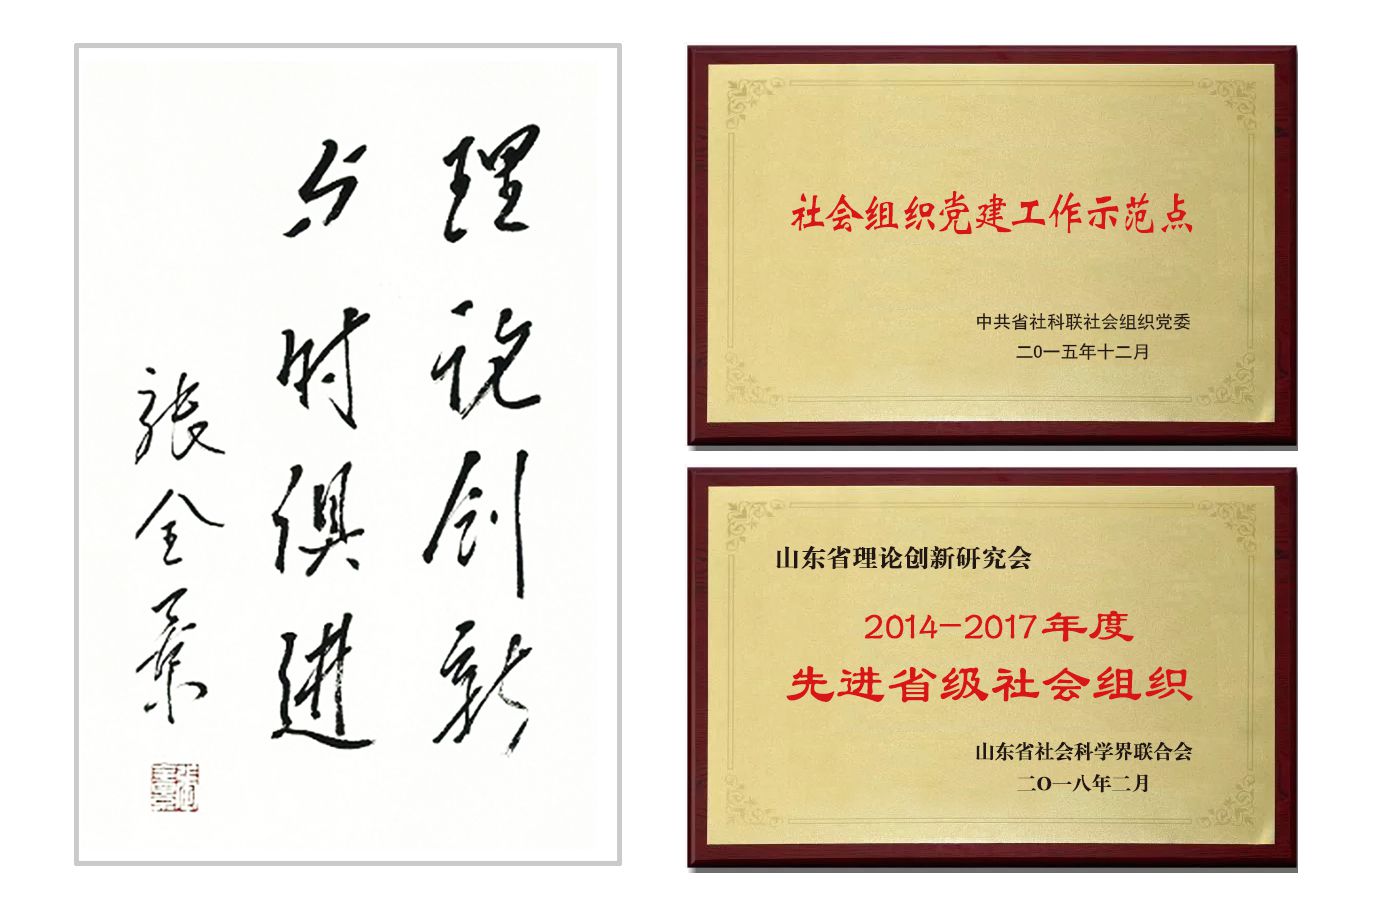 理论创新
与时俱进
張全景
社会组织党建工作示范点
中共省社科联社会组织党委
二〇一五年十二月
山东省理论创新研究会
2014-2017年度
先进省级社会组织
山东省社会科学界联合会
二〇一八年二月